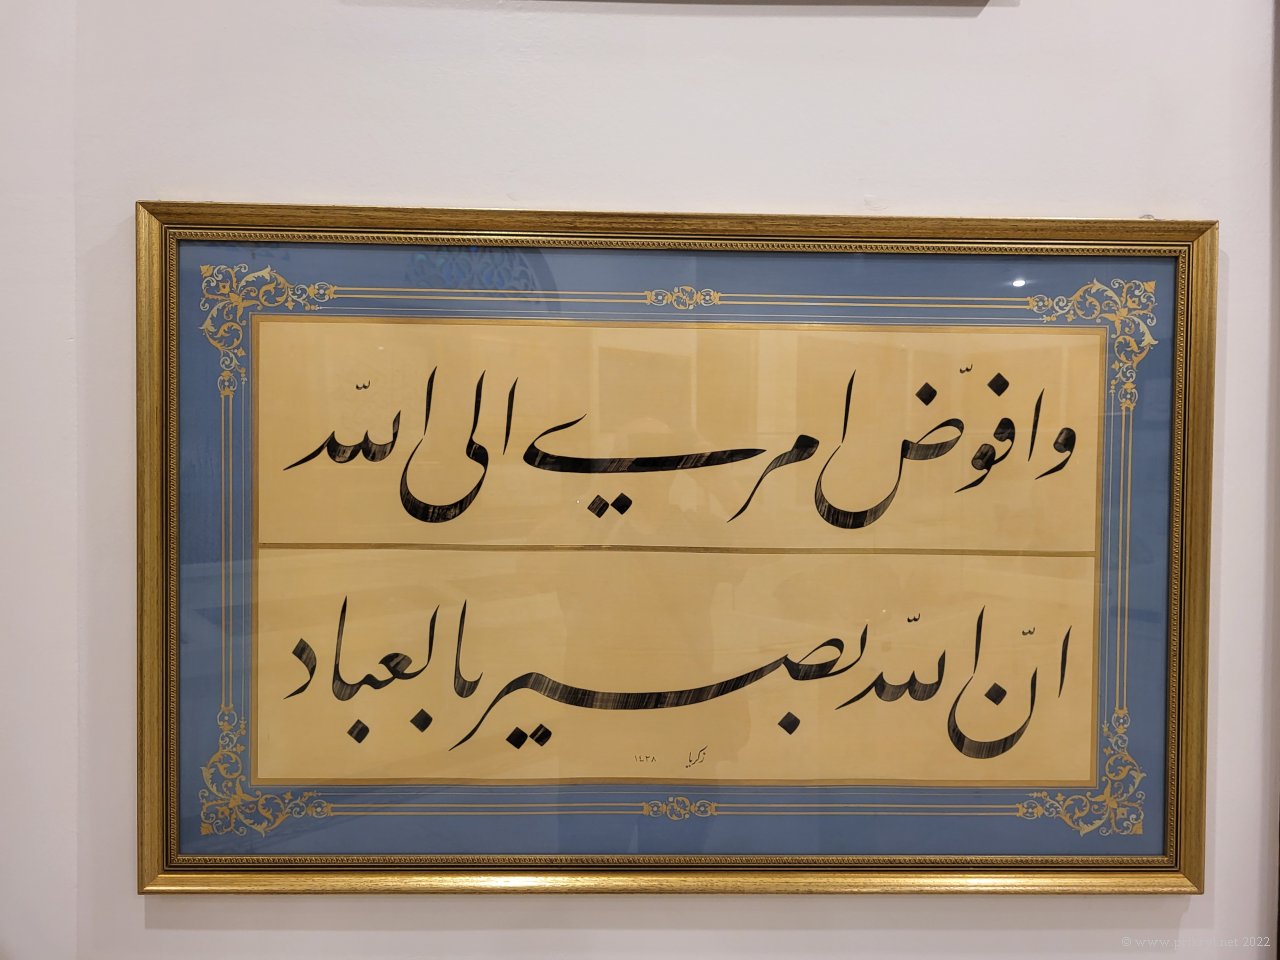 وافوّض امري الى الله
انّ الله بصير بالعباد
زكريا ١٤٣٨
© www.prikryl.net 2022